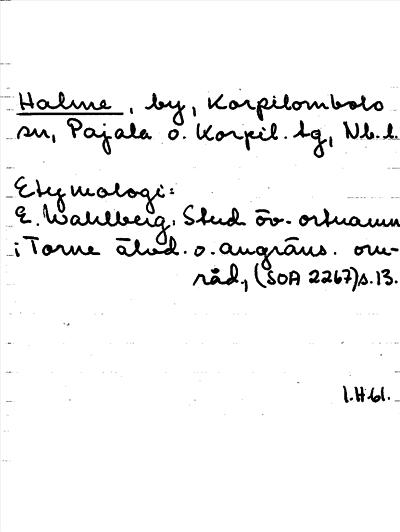 Halme, by, Korpilombolo
sn, Pajala o. Korpil. tg, Nb. l.
Etymologi:
E. Wahlberg. Stud öv. ortnamn
i Torne älvd. o. angräns. om-
råd., (SOA 2267) s. 13.